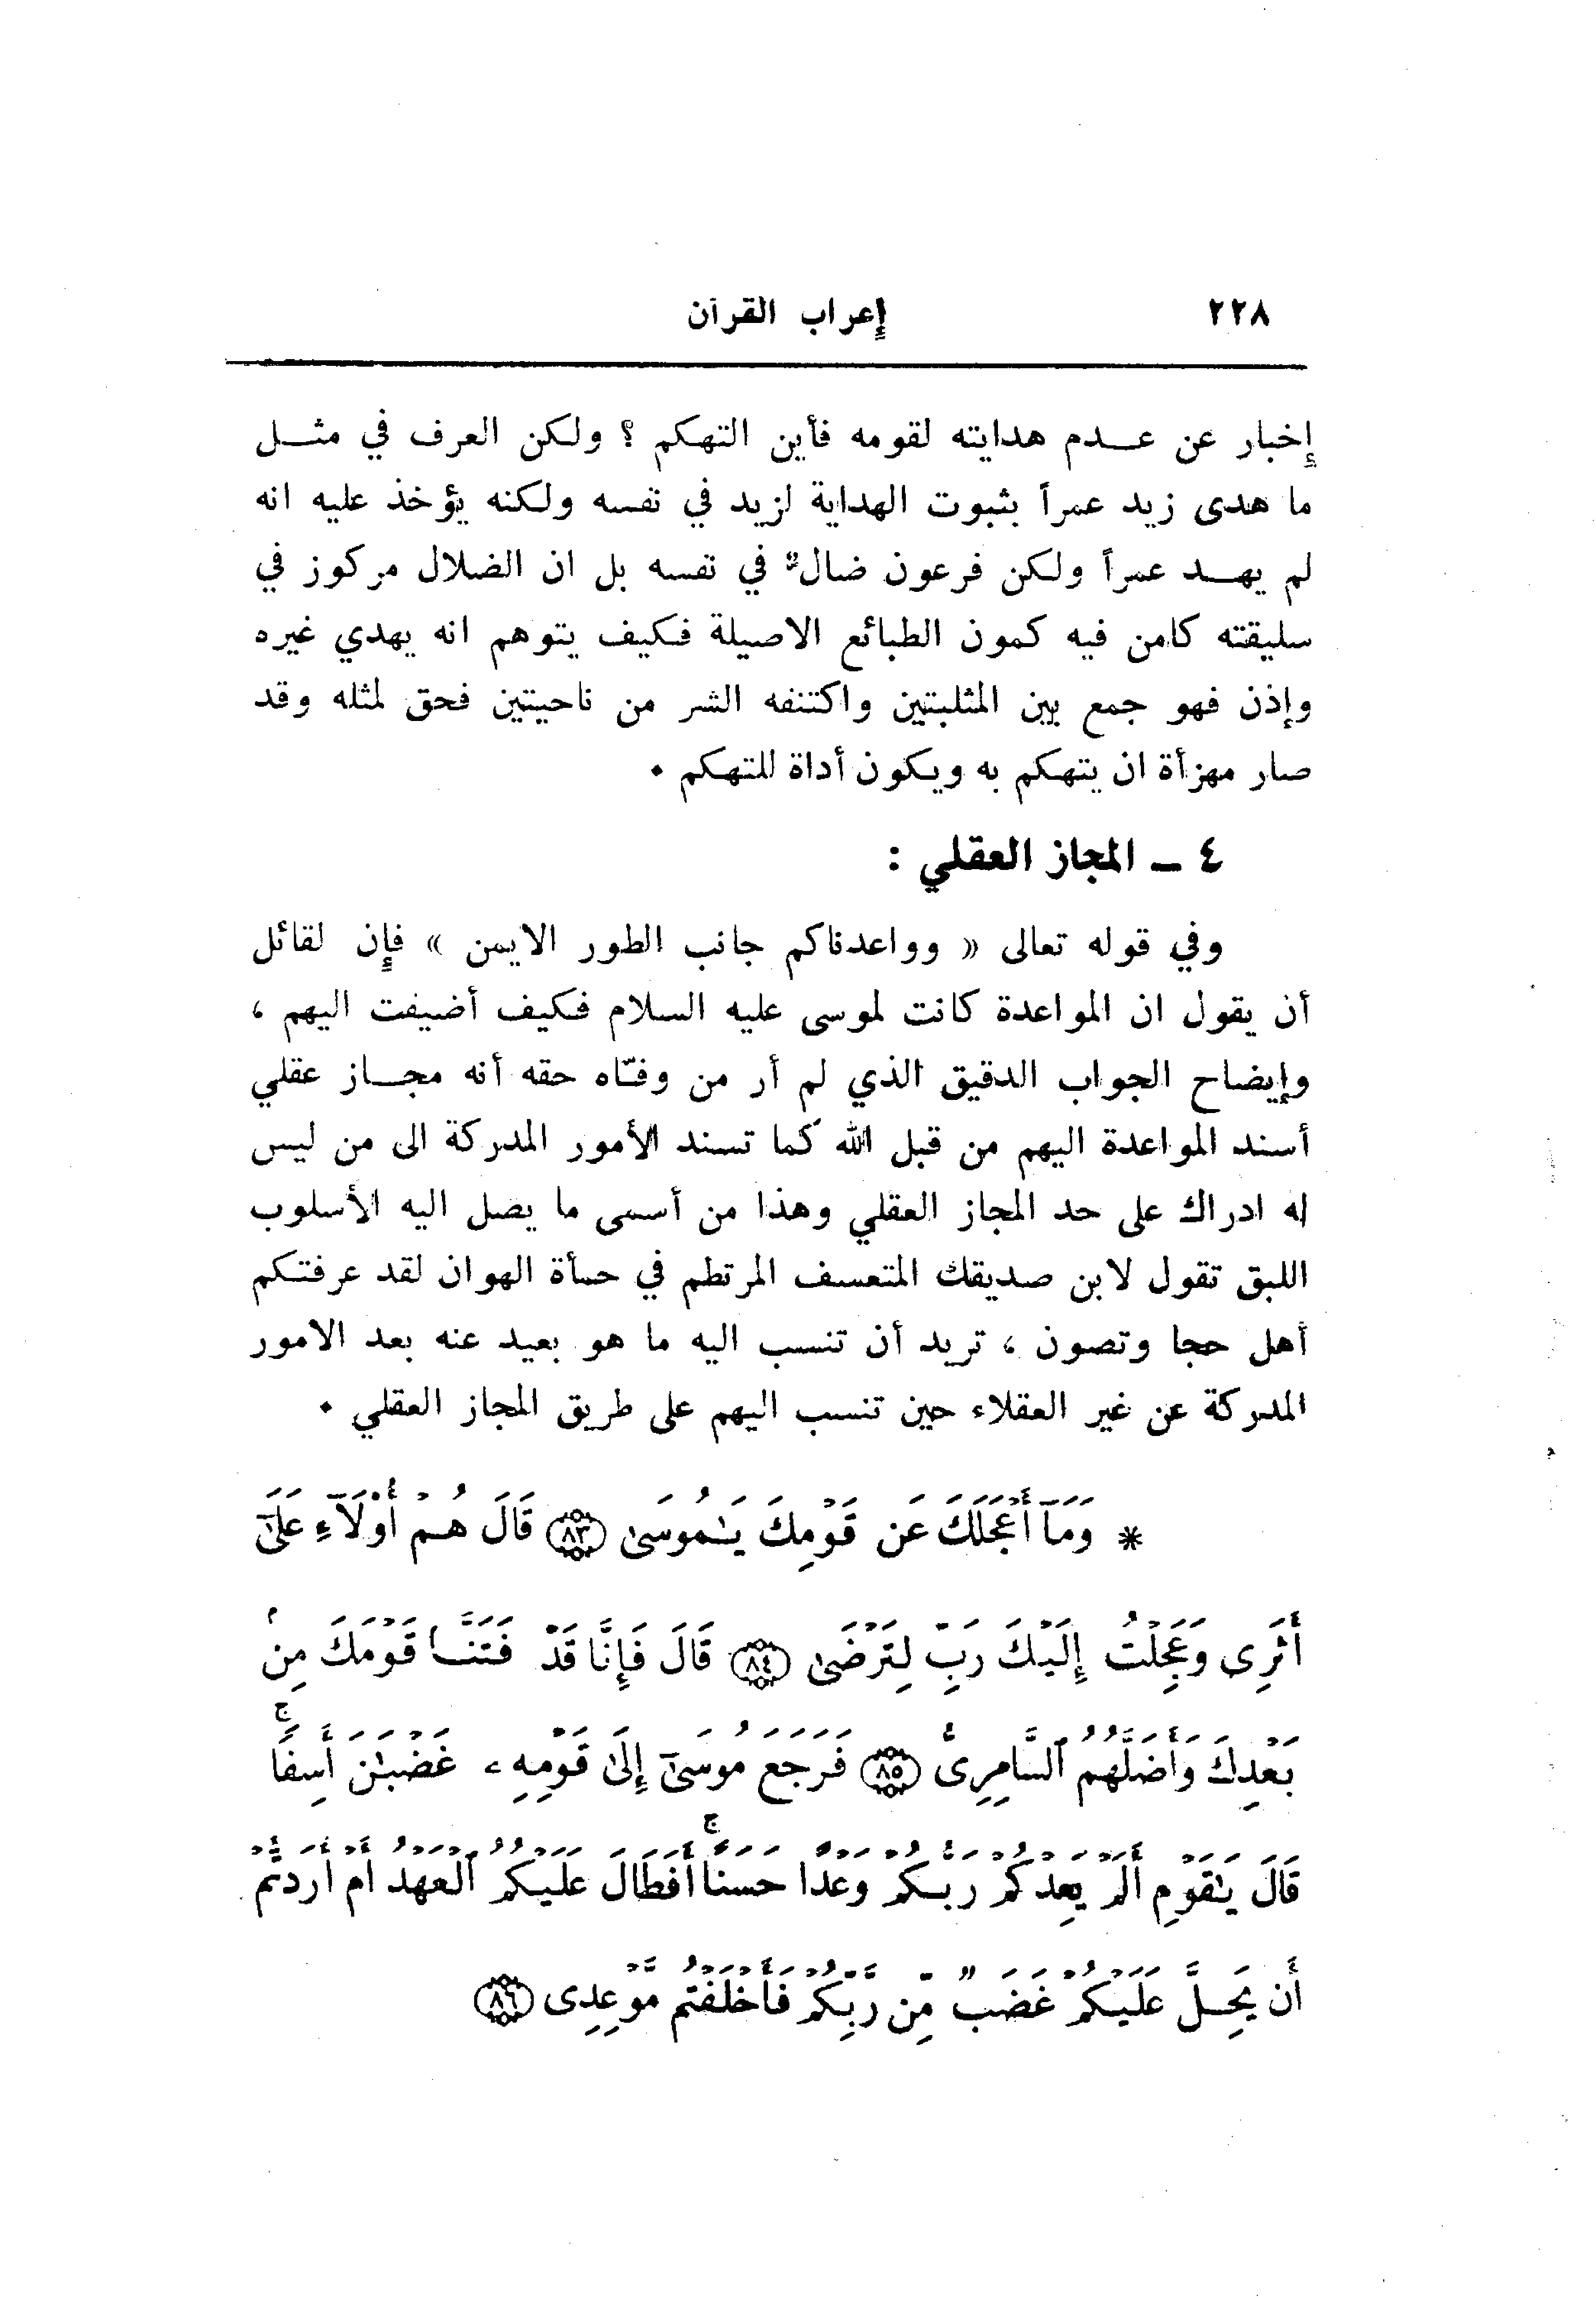 ٢٢٨ إعراب القرآن
إخبار عن عـــدم هدايته لقومه فأين التهكم ؟ ولكن العرف في مثـــل
ما هدى زيد عمراً بثبوت الهداية لزيد في نفسه ولكنه يؤخذ عليه انه
لم يهـــد عمراً ولكن فرعون ضالٌ في نفسه بل ان الضلال مركوز في
سليقته كامن فيه كمون الطبائع الاصيلة فكيف يتوهم انه يهدي غيره
وإذن فهو جمع بين المثلبتين واكتنفه الشر من ناحيتين فحق لمثله وقد
صار مهزأة ان يتهكم به ويكون أداة للتهكم ٠
٤ ـ المجاز العقلي :
وفي قوله تعالى « وواعدناكم جانب الطور الايمن » فإن لقائل
أن يقول ان المواعدة كانت لموسى عليه السلام فكيف أضيفت اليهم ،
وإيضاح الجواب الدقيق الذي لم أر من وفّاه حقه أنه مجـــاز عقلي
أسند المواعدة اليهم من قبل الله كما تسند الأمور المدركة الى من ليس
له ادراك على حد المجاز العقلي وهذا من أسمى ما يصل اليه الأسلوب
اللبق تقول لابن صديقك المتعسف المرتطم في حمأة الهوان لقد عرفتكم
أهل حجا وتصون ، تريد أن تنسب اليه ما هو بعيد عنه بعد الامور
المدركة عن غير العقلاء حين تنسب اليهم على طريق المجاز العقلي ٠
* وَمَآ أَعْجَلَكَ عَن قَوْمِكَ يَـٰمُوسَىٰ ﴿٨٣﴾ قَالَ هُـمْ أُوْلَآءِ عَلَىٰٓ
أَثَرِى وَعَجِلْتُ إِلَيْكَ رَبِّ لِتَرْضَىٰ ﴿٨٤﴾ قَالَ فَإِنَّا قَدْ فَتَنَّـا قَوْمَكَ مِنۢ
بَعْدِكَ وَأَضَلَّهُمُ ٱلسَّامِرِىُّ ﴿٨٥﴾ فَرَجَعَ مُوسَىٰٓ إِلَىٰ قَوْمِهِۦ غَضْبَـٰنَ أَسِفًاۚ
قَالَ يَـٰقَوْمِ أَلَمْ يَعِدْكُمْ رَبُّـكُمْ وَعْدًا حَسَنًاۚ أَفَطَالَ عَلَيْـكُمُ ٱلْعَهْدُ أَمْ أَرَدتُّمْ
أَن يَحِـلَّ عَلَيْـكُمْ غَضَبٌ مِّن رَّبِّكُمْ فَأَخْلَفْتُم مَّوْعِدِى ﴿٨٦﴾